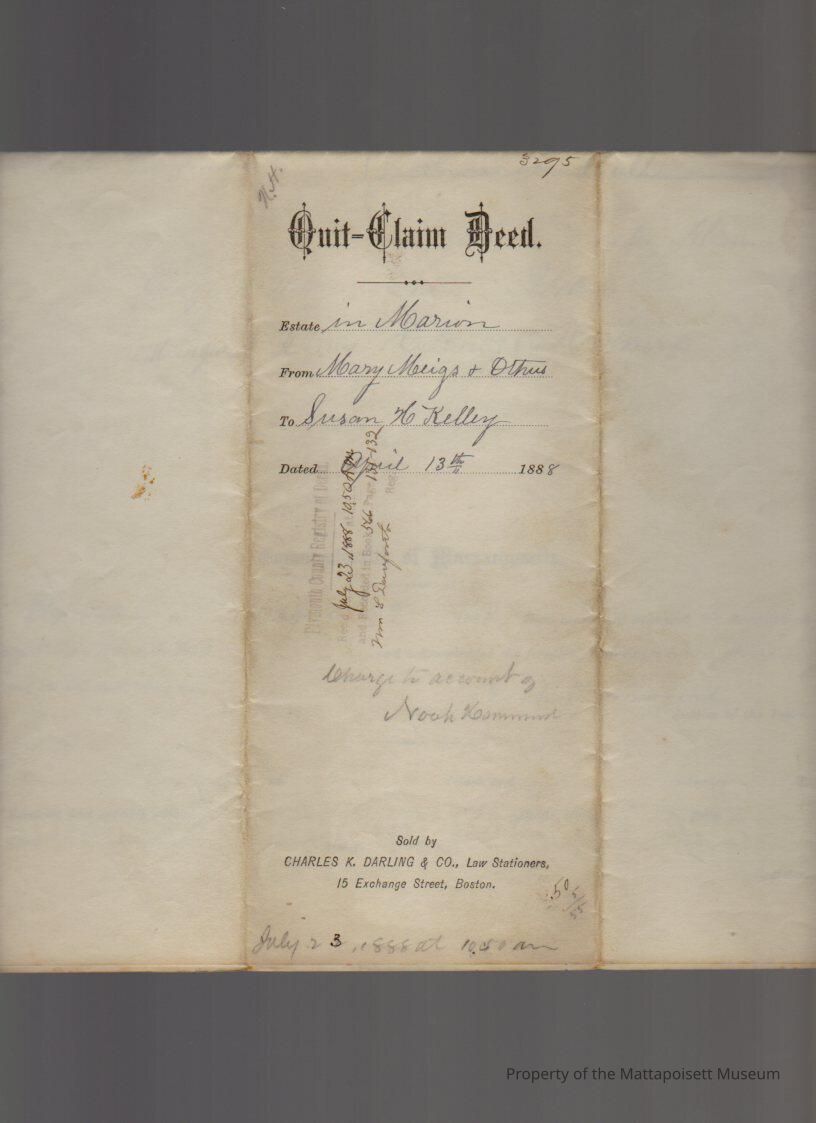 3295
N.H.
Quit-Claim Deed.
Estate in Marion
From Mary Meigs & Others
To Susan H Kelley
Dated April 13th 1888
Plymouth County Registry of Deeds
Rec'd July 23 1888 10.50 A M
and Recorded in Book 566 Page 132
Reg
Charge to account of
Noah Hammond
Sold by
CHARLES K. DARLING & CO., Law Stationers,
15 Exchange Street, Boston.
.50
July 23, 1888 at 10.50 am
Property of the Mattapoisett Museum